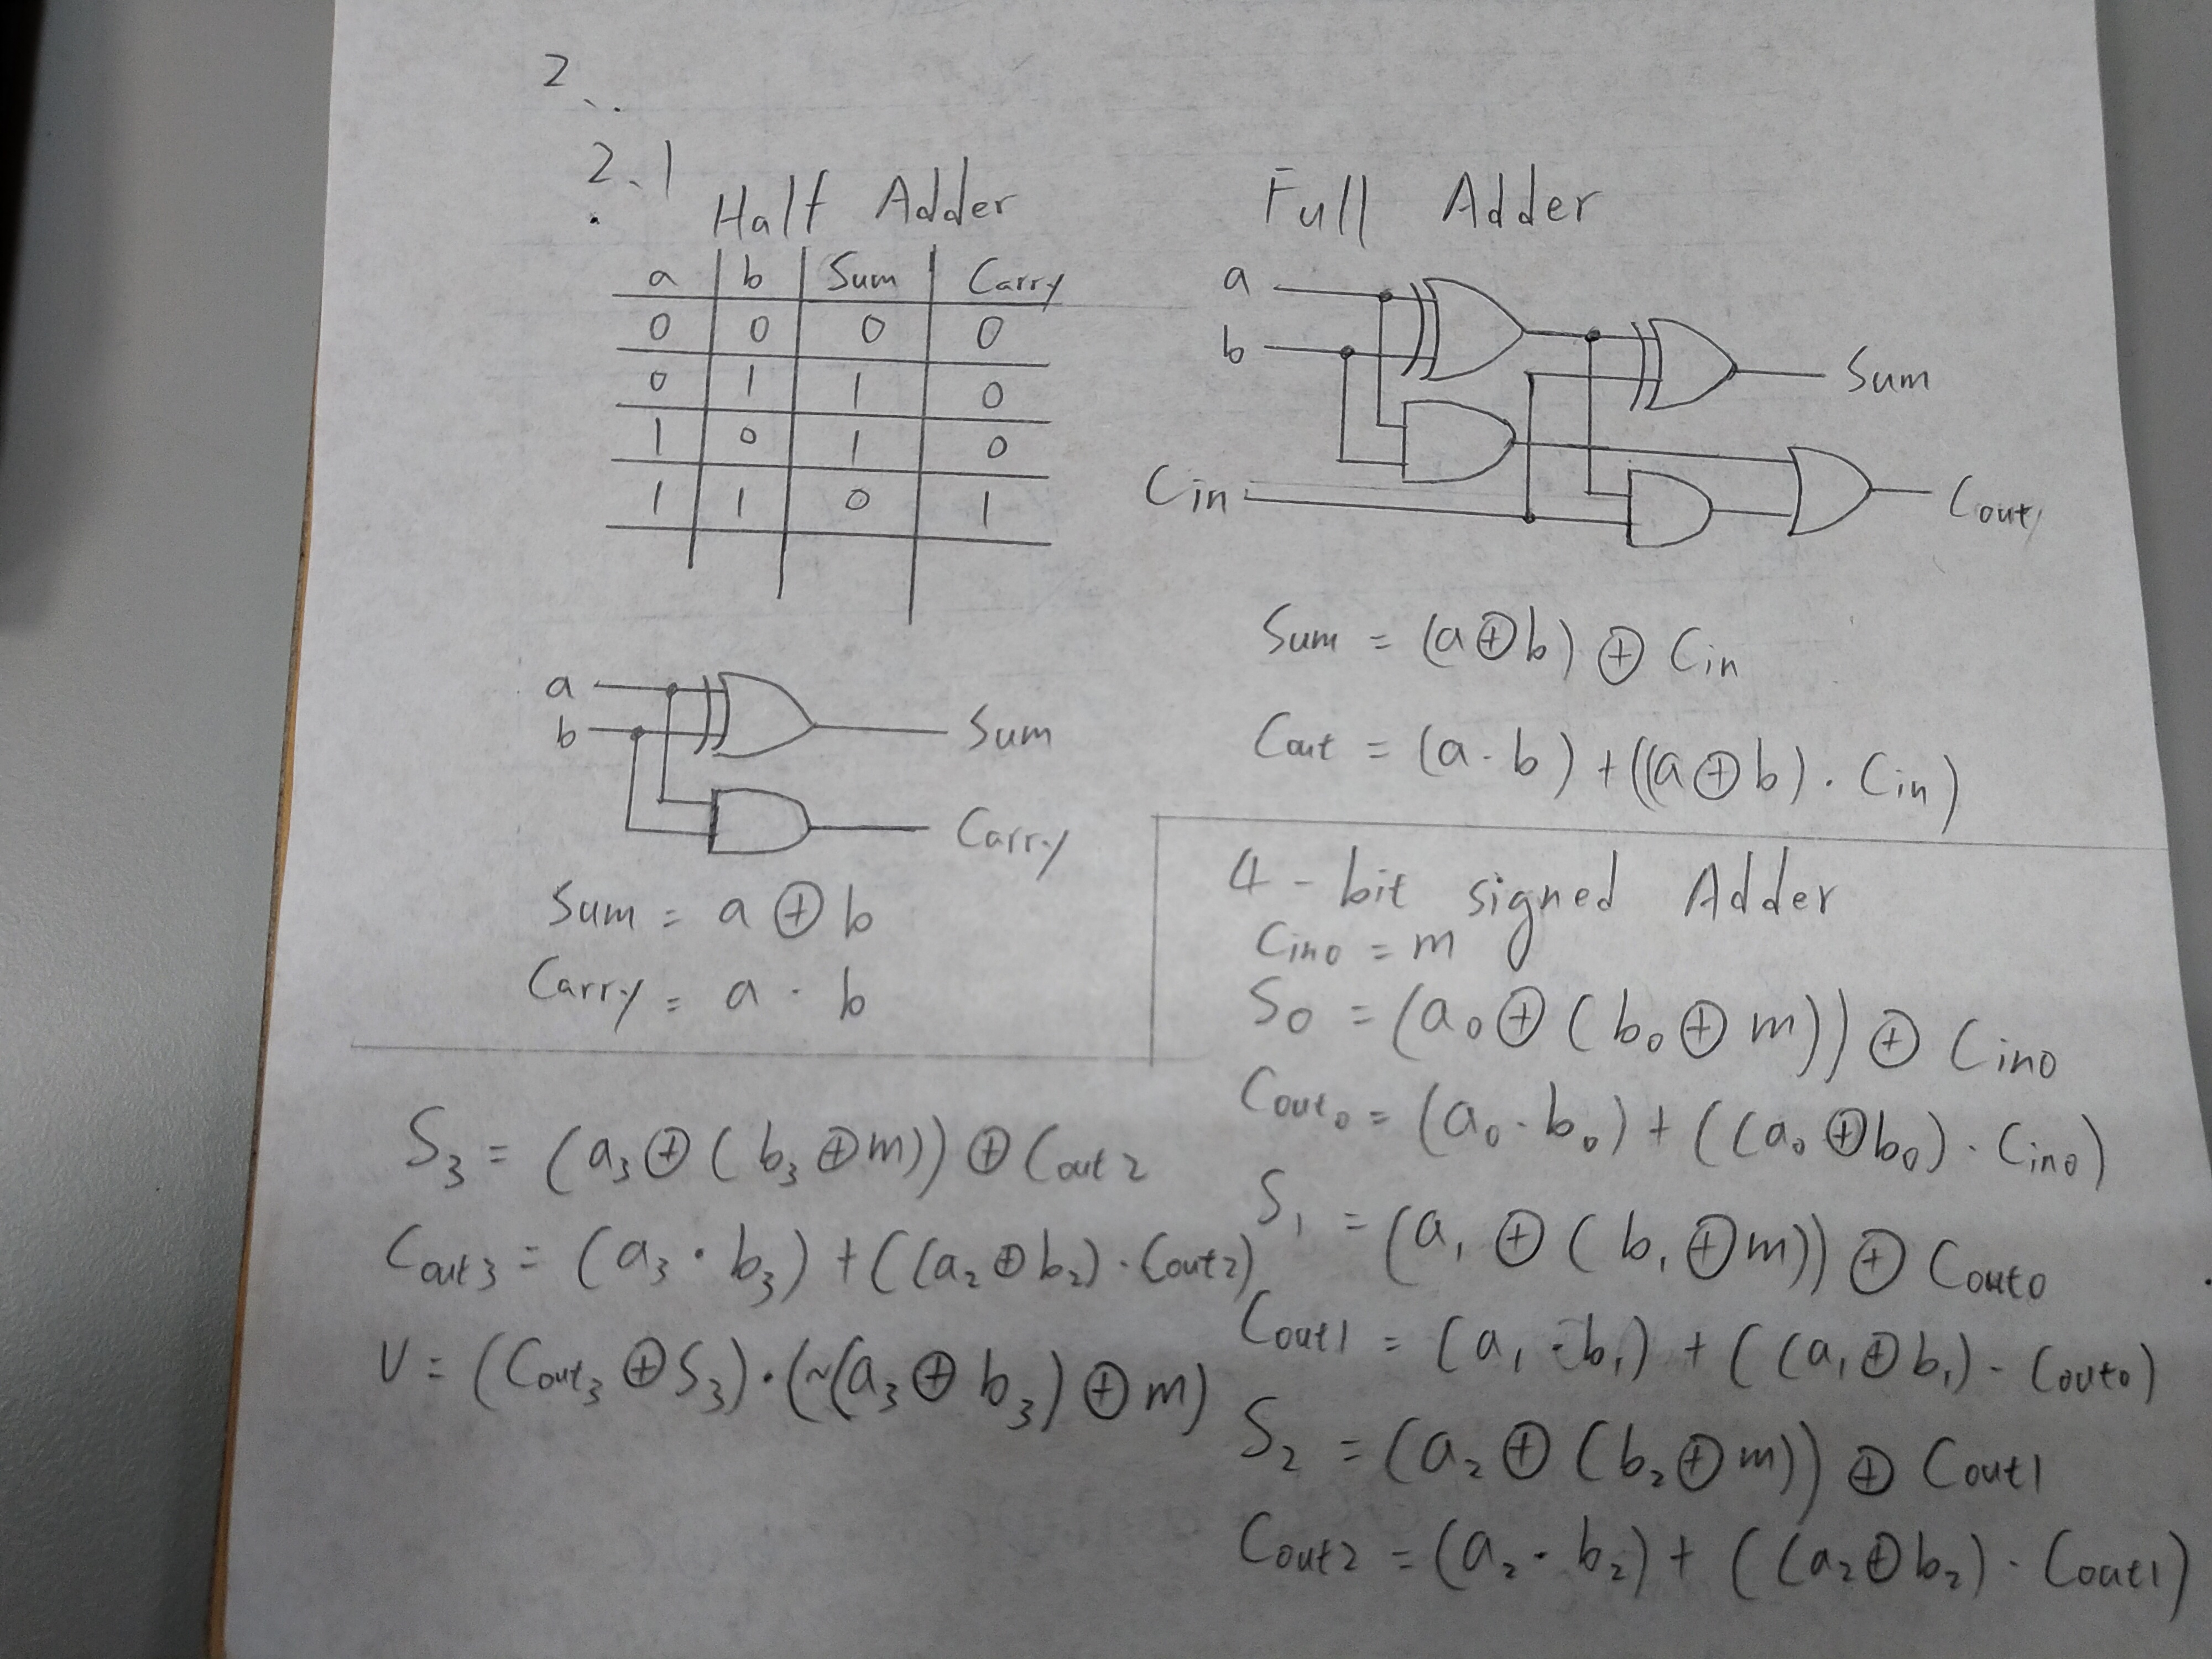 2、.
2、1
Half Adder
a b Sum Carry
0 0 0 0
0 1 1 0
1 0 1 0
1 1 0 1
a
b
Sum
Carry
Sum = a ⊕ b
Carry = a · b
Full Adder
a
b
Cin
Sum
Cout
Sum = (a⊕b) ⊕ Cin
Cout = (a·b)+((a⊕b)·Cin)
4-bit signed Adder
Cin0 = m
S0 = (a0⊕(b0⊕m))⊕Cin0
Cout0 = (a0·b0)+((a0⊕b0)·Cin0)
S1 = (a1⊕(b1⊕m))⊕Cout0
Cout1 = (a1·b1)+((a1⊕b1)·Cout0)
S2 = (a2⊕(b2⊕m))⊕Cout1
Cout2 = (a2·b2)+((a2⊕b2)·Cout1)
S3 = (a3⊕(b3⊕m))⊕Cout2
Cout3 = (a3·b3)+((a2⊕b2)·Cout2)
V = (Cout3⊕S3)·(~(a3⊕b3)⊕m)